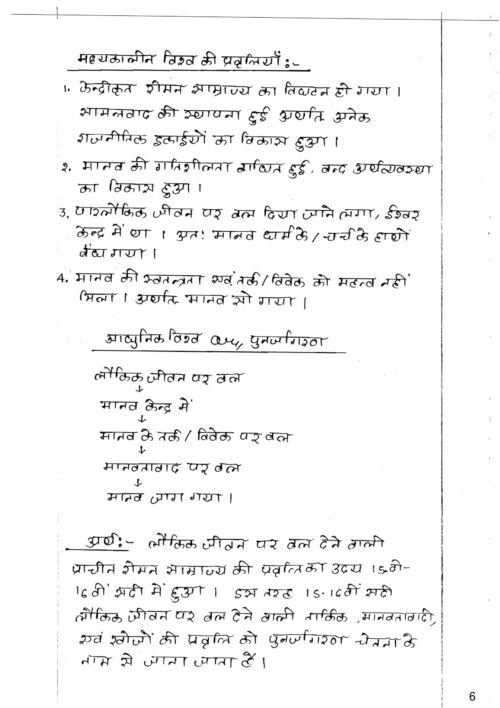 मध्यकालीन विश्व की प्रवृत्तियाँ :-
1. केन्द्रीकृत रोमन साम्राज्य का विघटन हो गया ।
सामन्तवाद की स्थापना हुई अर्थात् अनेक
राजनीतिक इकाईयों का विकास हुआ ।
2. मानव की गतिशीलता बाधित हुई, बन्द अर्थव्यवस्था
का विकास हुआ ।
3. पारलौकिक जीवन पर बल दिया जाने लगा, ईश्वर
केन्द्र में था । अतः मानव धर्म के / चर्च के हाथों
बंध गया ।
4. मानव की स्वतन्त्रता एवं तर्क / विवेक को महत्व नहीं
मिला । अर्थात् मानव सो गया ।
आधुनिक विश्व एवं पुनर्जागरण
लौकिक जीवन पर बल
↓
मानव केन्द्र में
↓
मानव के तर्क / विवेक पर बल
↓
मानवतावाद पर बल
↓
मानव जाग गया ।
अर्थ :- लौकिक जीवन पर बल देने वाली
प्राचीन रोमन साम्राज्य की प्रवृत्ति का उदय 15वी-
16वीं सदी में हुआ । इस तरह 15-16वीं सदी
लौकिक जीवन पर बल देने वाली तार्किक, मानवतावादी,
एवं खोजों की प्रवृत्ति को पुनर्जागरण चेतना के
नाम से जाना जाता है ।
6